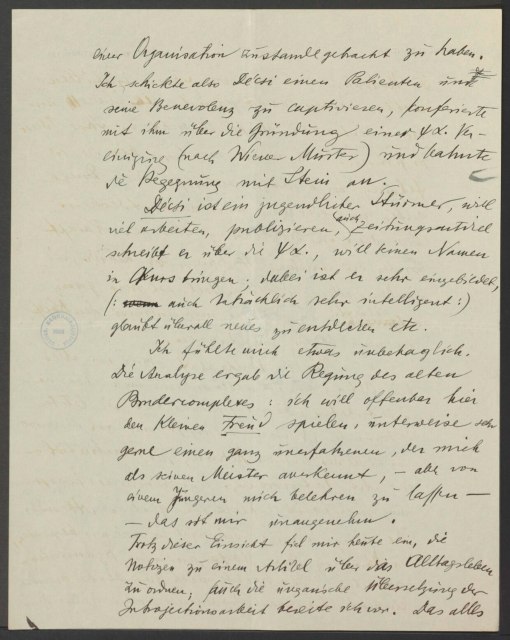 einer Organisation zustandegebracht zu haben.
Ich schickte also Décsi einen Patienten um
seine Benevolenz zu captivieren, konferierte
mit ihm über die Gründung einer ψα. Ver-
einigung (nach Wiener Muster) und bahnte
die Begegnung mit Stein an.
Décsi ist ein jugendlicher Stürmer, will
viel arbeiten, publizieren, auch Zeitungsartikel
schreibt er über die ψα., will seinen Namen
in Kurs bringen; dabei ist er sehr eingebildet,
(: wenn auch tatsächlich sehr intelligent :)
glaubt überall neues zu entdecken etc.
Ich fühlte mich etwas unbehaglich.
Die Analyse ergab die Regung des alten
Brudercomplexes: ich will offenbar hier
den kleinen Freud spielen, unterweise sehr
gerne einen ganz unerfahrenen, der mich
als seinen Meister anerkennt, – aber von
einem Jüngeren mich belehren zu lassen –
– das ist mir unangenehm.
Trotz dieser Einsicht fiel mir heute ein, die
Notizen zu einem Artikel über das Alltagsleben
zu ordnen, auch die ungarische Übersetzung der
Introjektionsarbeit bereite ich vor. Das alles